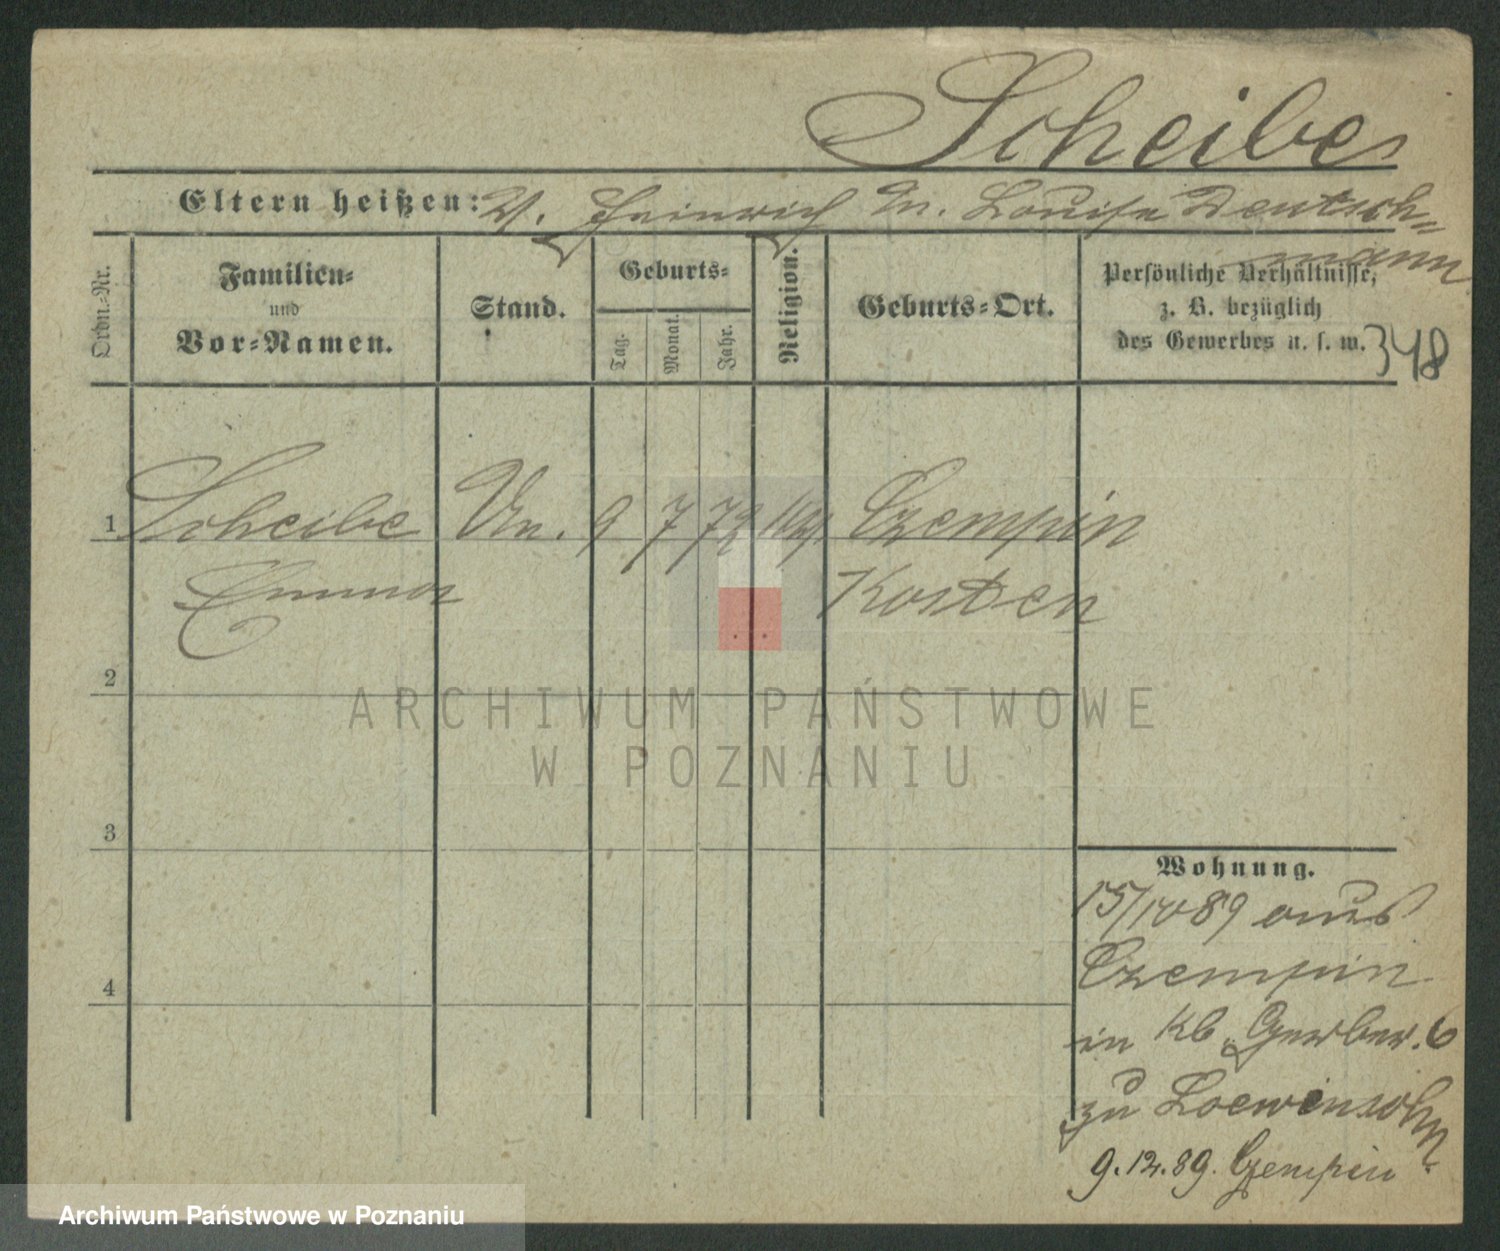 Scheibe
Eltern heißen: V. Heinrich M. Louise Deutsch=
mann
Ordn.-Nr.
Familien=
und
Vor=Namen.
Stand.
Geburts=
Tag.
Monat.
Jahr.
Religion.
Geburts=Ort.
Persönliche Verhältnisse,
z. B. bezüglich
des Gewerbes u. s. w.
348
1 Scheibe 9 7 72 Czempin
Emma Kosten
2
3
4
Wohnung.
15/10 89 aus
Czempin
in Kl. Gerber. 6
zu Loewensohn
9.12.89. Czempin
ARCHIWUM PAŃSTWOWE
W POZNANIU
Archiwum Państwowe w Poznaniu